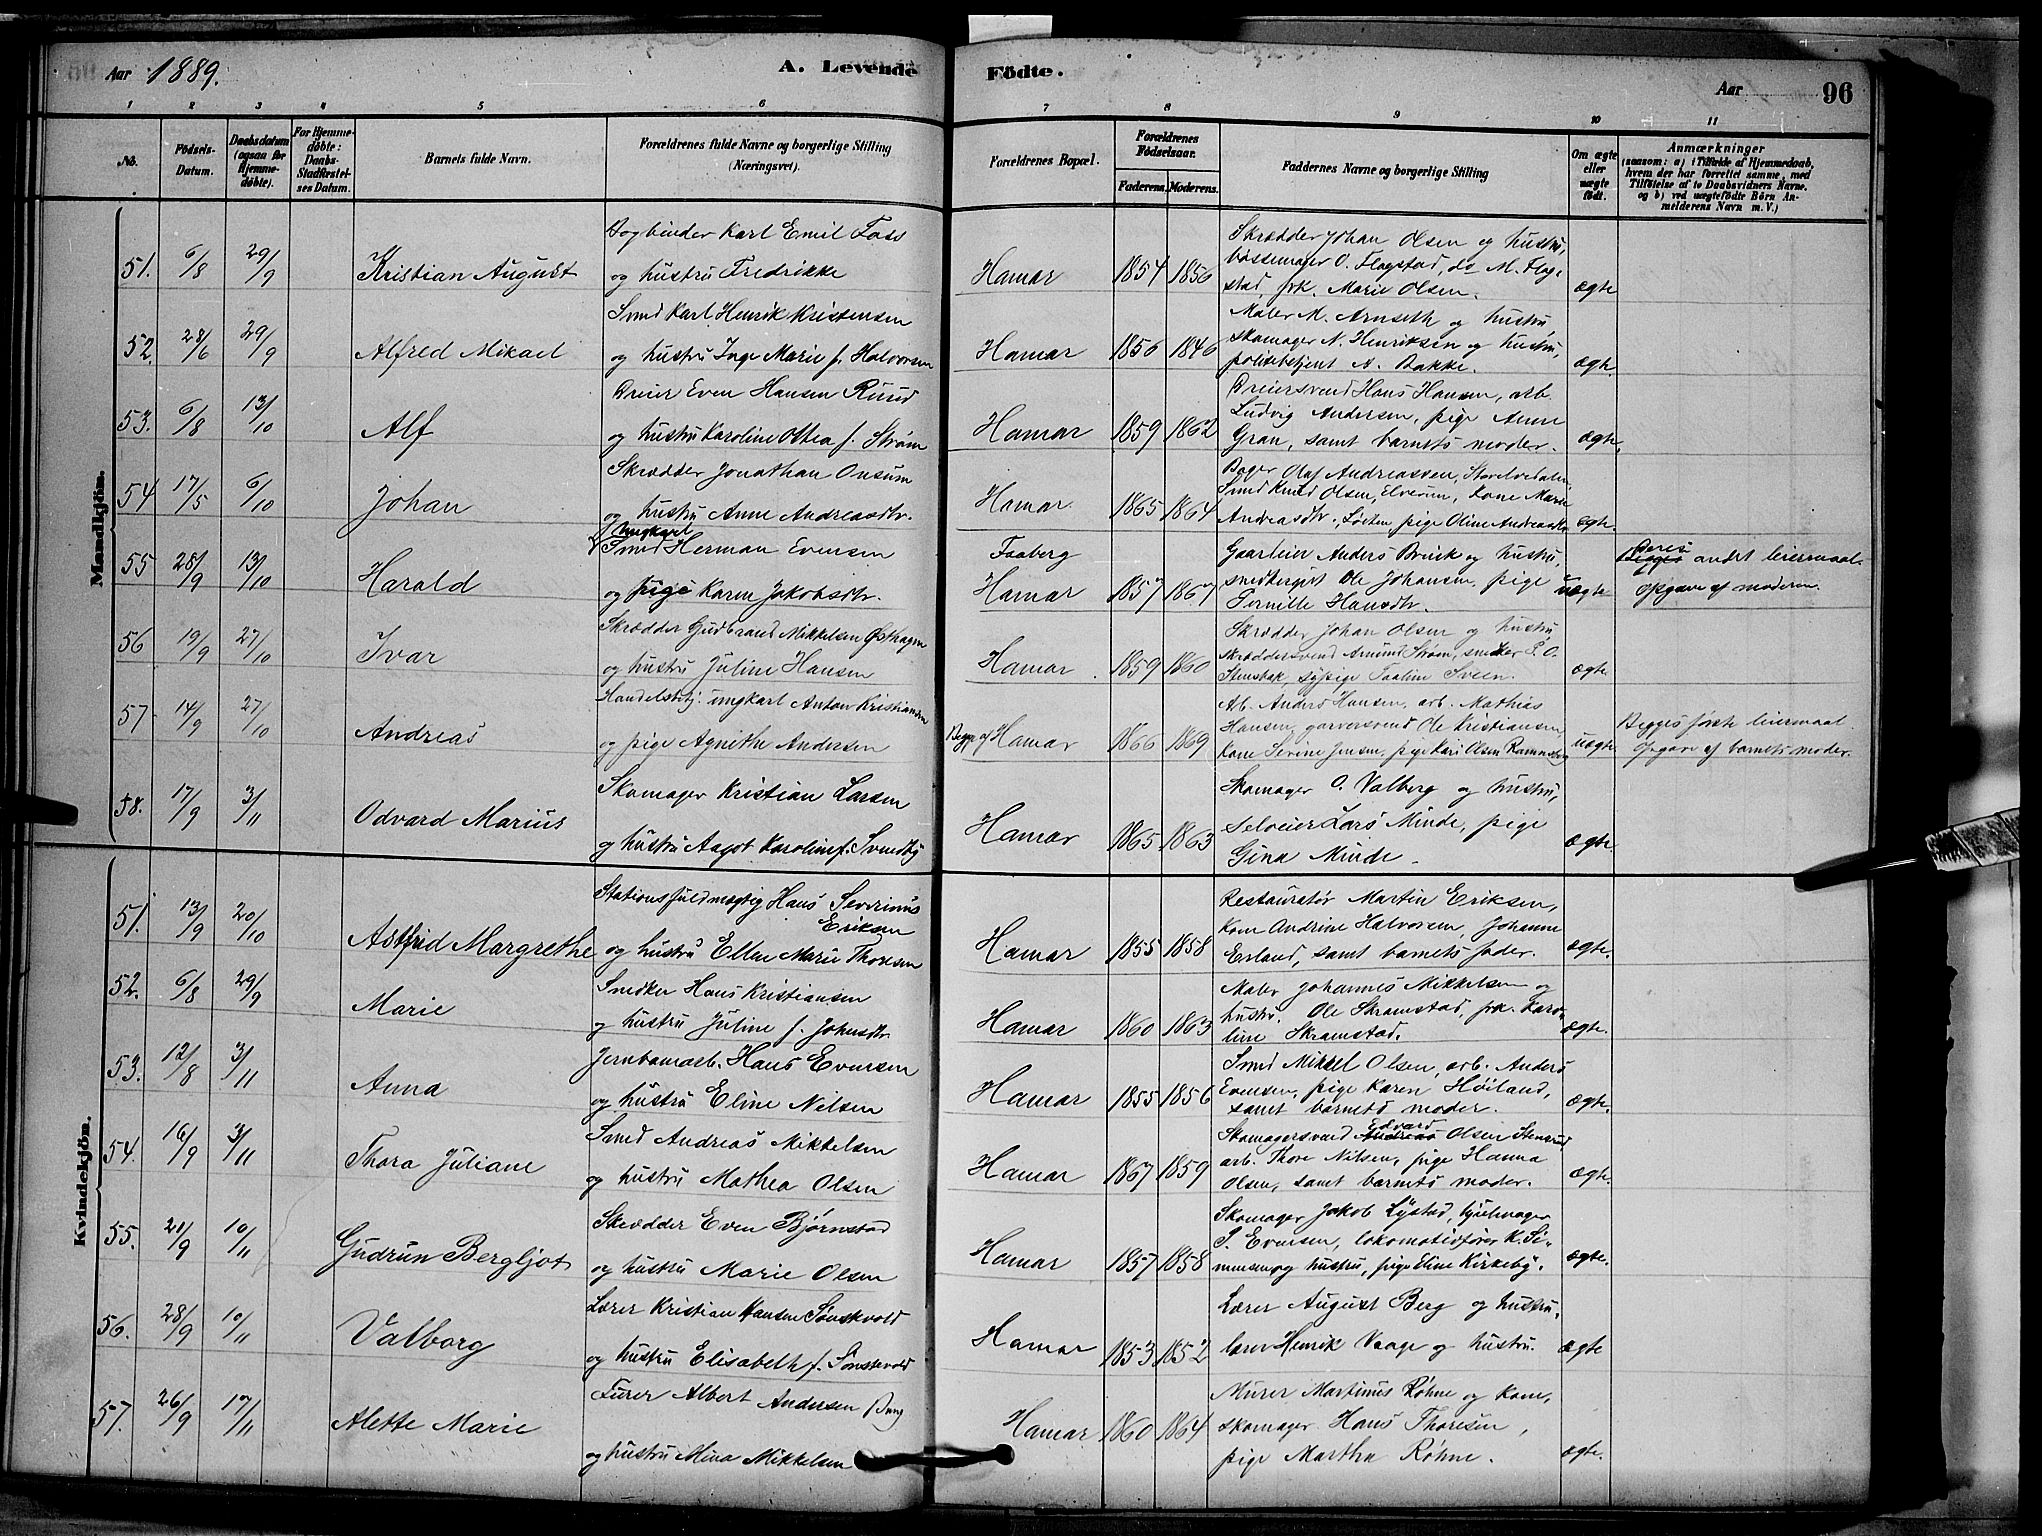 Aar 1889.
A. Levende
Födte.
Aar
96
1 2 3 4 5 6 7 8 9 10 11
No.
Födsels-Datum.
Daabsdatum (ogsaa for Hjemmedöbte).
For Hjemmedöbte: Daabs-Stadfæstelses Datum.
Barnets fulde Navn.
Forældrenes fulde Navne og borgerlige Stilling (Næringsvei).
Forældrenes Bopæl.
Forældrenes Födselsaar.
Faderens. Moderens.
Faddernes Navne og borgerlige Stilling
Om ægte eller uægte födt.
Anmærkninger
(saasom: a) i Tilfælde af Hjemmedaab, hvem der har forrettet samme, med Tilföielse af to Daabsvidners Navne. og b) ved uægtefödte Börn Anmelderens Navn m. V.)
Mandkjön.
51. 6/8 29/9 Kristian August
Bogbinder Karl Emil Foss
og hustru Fredrikke
Hamar 1854 1856
Skrædder Johan Olsen og hustru,
bøssemager O. Flagstad, do M. Flag-
stad, frk. Marie Olsen.
ægte
52. 28/6 29/9 Alfred Mikael
Smed Karl Henrik Kristensen
og hustru Inge Marie f. Halvorsen
Hamar 1856 1846
Maler M. Arnseth og hustru,
skomager N. Henriksen og hustru,
politibetjent A. Bakke.
ægte.
53. 6/8 13/10 Alf
Dreier Even Hansen Ruud
og hustru Karoline Othea f. Strøm
Hamar 1859 1862
Dreiersvend Hans Hansen, arb.
Ludvig Andersen, pige Anne
Gran, samt barnets moder.
ægte.
54 17/5 6/10 Johan
Skrædder Jonathan Onsum
og hustru Anne Andreasdtr.
Hamar 1865 1864
Bager Olaf Andreassen,
Smed Knud Olsen, Elverum, kone Marie
Andreasdtr., Løiten, pige Oline
ægte.
55 28/9 13/10 Harald
ungkarl
Smed Herman Evensen
og pige Karen Jakobsdtr.
Faaberg
Hamar 1857 1867
Gaardeier Anders og hustru,
Ole Johansen, pige
Pernille Hansdtr.
uægte
Deres
Begges andet leiermaal
opgave af moderen.
56 19/9 27/10 Ivar
Skrædder Gudbrand Mikkelsen Østhagen
og hustru Juline Hansen
Hamar. 1859 1860
Skrædder Johan Olsen og hustru,
skræddersvend Amund Strøm, snedker P. O.
Stensbak, sypige Paaline Sveen.
ægte.
57 14/9 27/10 Andreas
Handelsbetj. ungkarl Anton Kristiansen
og pige Agnethe Andersen
Begge af Hamar 1866 1869
Arb. Anders Hansen, arb. Mathias
Hansen, garversvend Ole Kristiansen,
Kone Serine Jensen, pige Kari Olsen
uægte
Begges første leiermaal.
Opgave af barnets moder.
58. 17/9 3/11 Odvard Marius
Skomager Kristian Larsen
og hustru Aagot Karoline f. Svendby
Hamar 1865 1863
Skomager O. Valberg og hustru,
selveier Lars Minde, pige
Gina Minde.
ægte.
Kvindekjön.
51. 13/9 20/10 Astfrid Margrethe
Stationsfuldmægtig Hans Severinus
Eriksen
og hustru Ellen Marie Thoresen
Hamar 1855 1858
Restauratør Martin Eriksen,
Kone Andrine Halvorsen, Johanne
Erland, samt barnets fader.
ægte.
52. 6/8 29/9 Marie
Snedker Hans Kristiansen
og hustru Juline f. Johnsdtr.
Hamar 1860 1863
Maler Johannes Mikkelsen og
hustru, Ole Skramstad, frk. Karo-
line Skramstad.
ægte.
53. 12/8 3/11 Anna
Jernbanearb. Hans Evensen
og hustru Eline Nilsen
Hamar 1855 1856
Smed Mikkel Olsen, arb. Anders
Evensen, pige Karen Høiland,
samt barnets moder.
ægte.
54. 16/9 3/11 Thora Juliane
Smed Andreas Mikkelsen
og hustru Mathea Olsen
Hamar 1867 1859
Edvard
Skomagersvend Andreas Olsen Stensrud
arb. Thore Nilsen, pige Hanna
Olsen, samt barnets moder.
ægte.
55. 21/9 10/11 Gudrun Bergljot
Skrædder Even Bjørnstad
og hustru Marie Olsen
Hamar 1857 1858
Skomager Jakob Lystad, hjulmager
P. Evensen, lokomotivfører K. Si-
mensen og hustru, pige Eline Kirkeby.
ægte.
56. 28/9 10/11 Valborg
Lærer Kristian Hansen Sønstevold
og hustru Elisabeth f. Sønstevold
Hamar 1853 1852
Lærer August Berg og hustru,
lærer Henrik Vaage og hustru.
ægte
57. 26/9 17/11 Alette Marie
Furer Albert Andersen Bang
og hustru Mina Mikkelsen
Hamar 1860 1864
Murer Martinus Røhne og kone,
skomager Hans Thoresen,
pige Martha Røhne.
ægte.